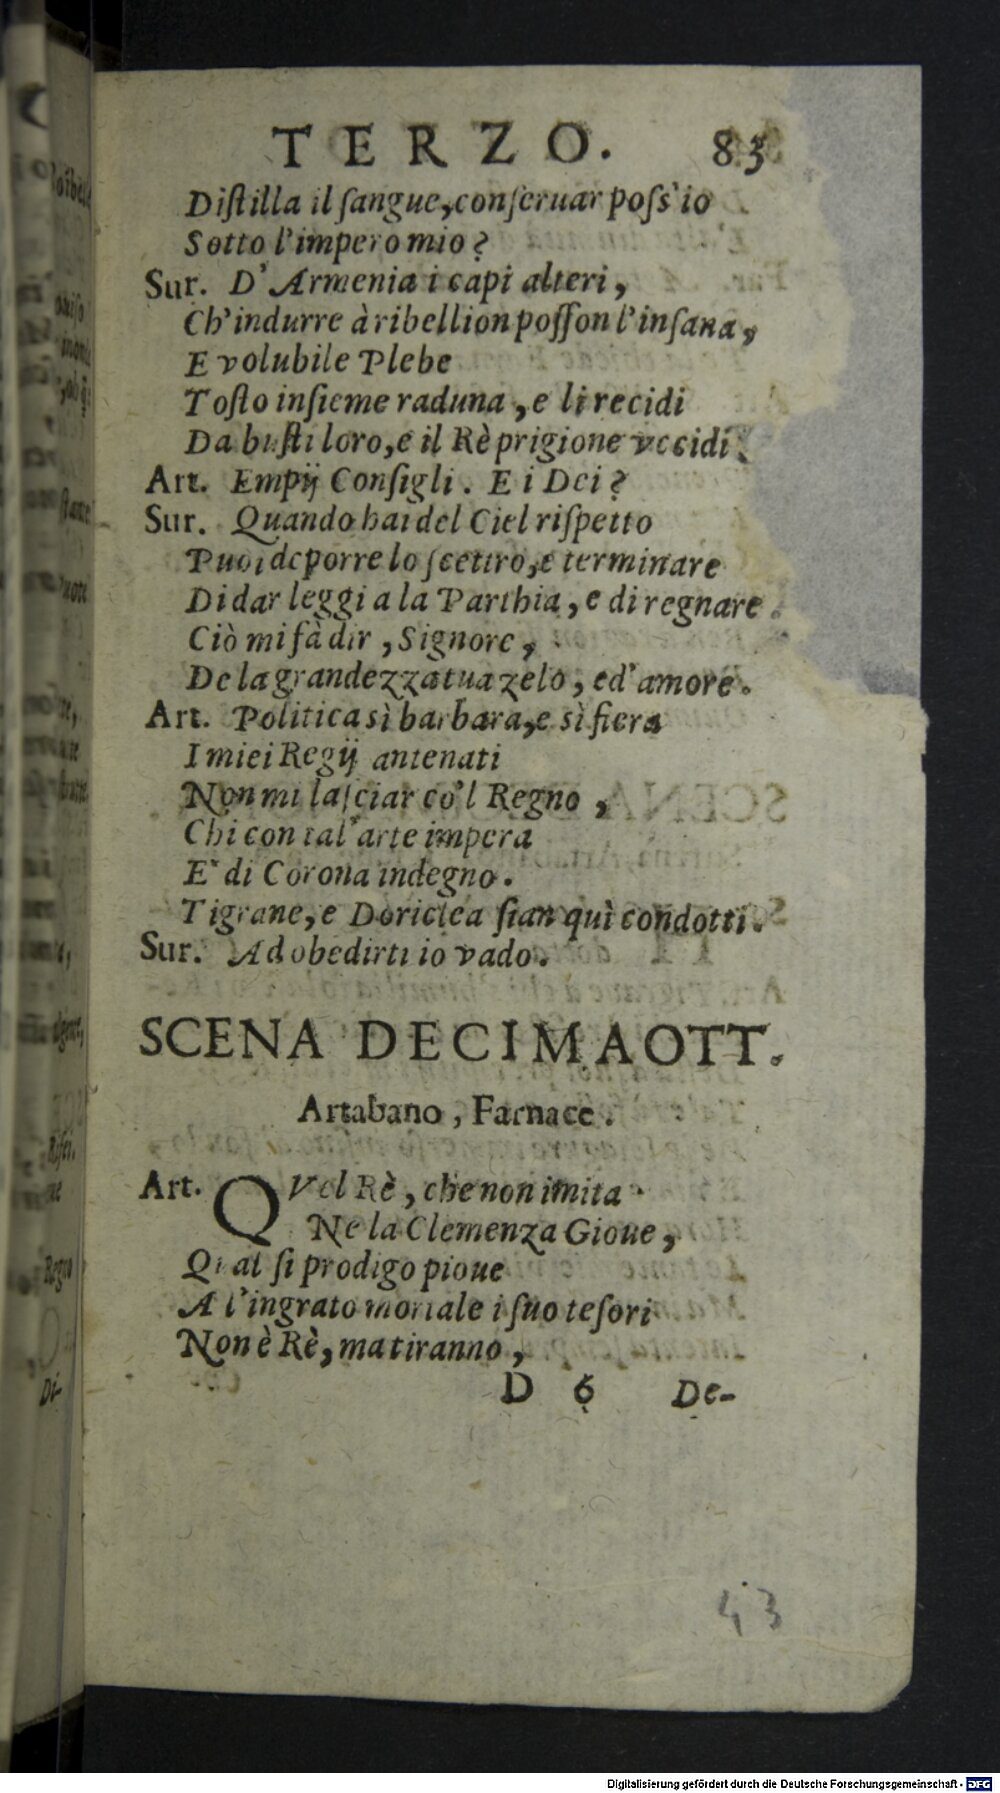 TERZO. 83
Diſtilla il ſangue, conſeruar poſs'io
Sotto l'impero mio?
Sur. D'Armenia i capi alteri,
Ch'indurre à ribellion poſſon l'inſana,
E volubile Plebe
Toſto inſieme raduna, e li recidi
Da buſti loro, e il Rè prigione vccidi.
Art. Empij Conſigli. E i Dei?
Sur. Quando hai del Ciel riſpetto
Puoi deporre lo ſcettro, e terminare
Di dar leggi a la Parthia, e di regnare.
Ciò mi fà dir, Signore,
De la grandezza tua zelo, ed'amore.
Art. Politica sì barbara, e sì fiera
I miei Regij antenati
Non mi laſciar co'l Regno,
Chi con tal'arte impera
E' di Corona indegno.
Tigrane, e Doriclea ſian quì condotti.
Sur. Ad obedirti io vado.
SCENA DECIMAOTT.
Artabano, Farnace.
Art. QVel Rè, che non imita
Ne la Clemenza Gioue,
Qual ſi prodigo pioue
A l'ingrato mortale i ſuo teſori
Non è Rè, ma tiranno,
D 6 De-
43
Digitalisierung gefördert durch die Deutsche Forschungsgemeinschaft - DFG